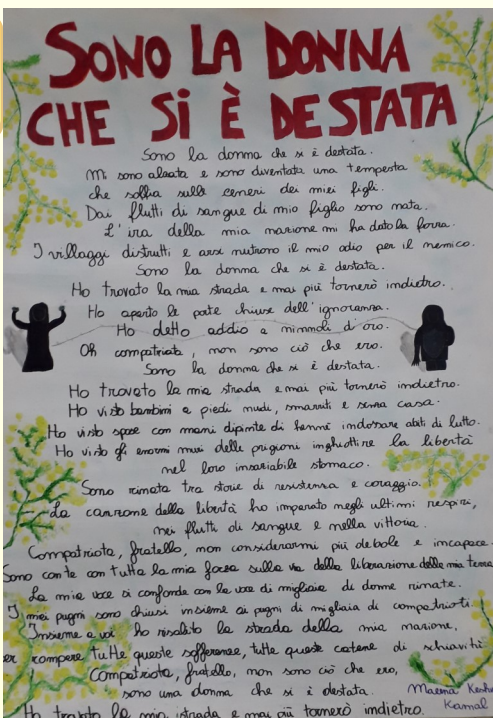 SONO LA DONNA
CHE SI È DESTATA
Sono la donna che si è destata.
Mi sono alzata e sono diventata una tempesta
che soffia sulle ceneri dei miei figli.
Dai flutti di sangue di mio figlio sono nata.
L'ira della mia nazione mi ha dato la forza.
I villaggi distrutti e arsi nutrono il mio odio per il nemico.
Sono la donna che si è destata.
Ho trovato la mia strada e mai più tornerò indietro.
Ho aperto le porte chiuse dell'ignoranza.
Ho detto addio a ninnoli d'oro.
Oh compatriota, non sono ciò che ero.
Sono la donna che si è destata.
Ho trovato la mia strada e mai più tornerò indietro.
Ho visto bambini a piedi nudi, smarriti e senza casa.
Ho visto spose con mani dipinte di henné indossare abiti di lutto.
Ho visto gli enormi muri delle prigioni inghiottire la libertà
nel loro insaziabile stomaco.
Sono rinata tra storie di resistenza e coraggio.
La canzone della libertà ho imparato negli ultimi respiri,
nei flutti di sangue e nella vittoria.
Compatriota, fratello, non considerarmi più debole e incapace.
Sono con te con tutta la mia forza sulla via della liberazione della mia terra
La mia voce si confonde con la voce di migliaia di donne rinate.
I miei pugni sono chiusi insieme ai pugni di migliaia di compatrioti
Insieme a voi ho risalito la strada della mia nazione,
per rompere tutte queste sofferenze, tutte queste catene di schiavitù
Compatriota, fratello, non sono ciò che ero,
sono una donna che si è destata.
Ho trovato la mia strada e mai più tornerò indietro.
Meena
Kamal